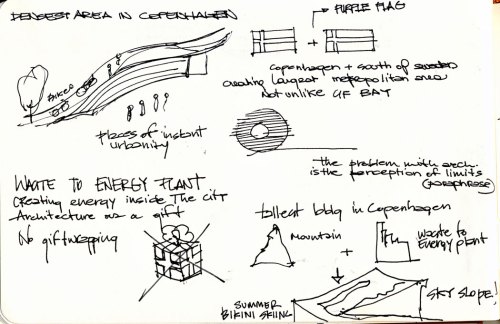 DENSEST AREA IN COPENHAGEN
PURPLE FLAG
+
BIKES
Copenhagen + south of sweden
creating largest metropolitan area
Not unlike SF BAY
places of instant
urbanity
the problem with arch.
is the perception of limits
(paraphrase)
WASTE TO ENERGY PLANT
Creating energy inside The city
Architecture as a gift
No giftwrapping
tallest bldg in Copenhagen
Mountain
+
waste to
Energy plant
SKY SLOPE!
SUMMER
BIKINI SKIING